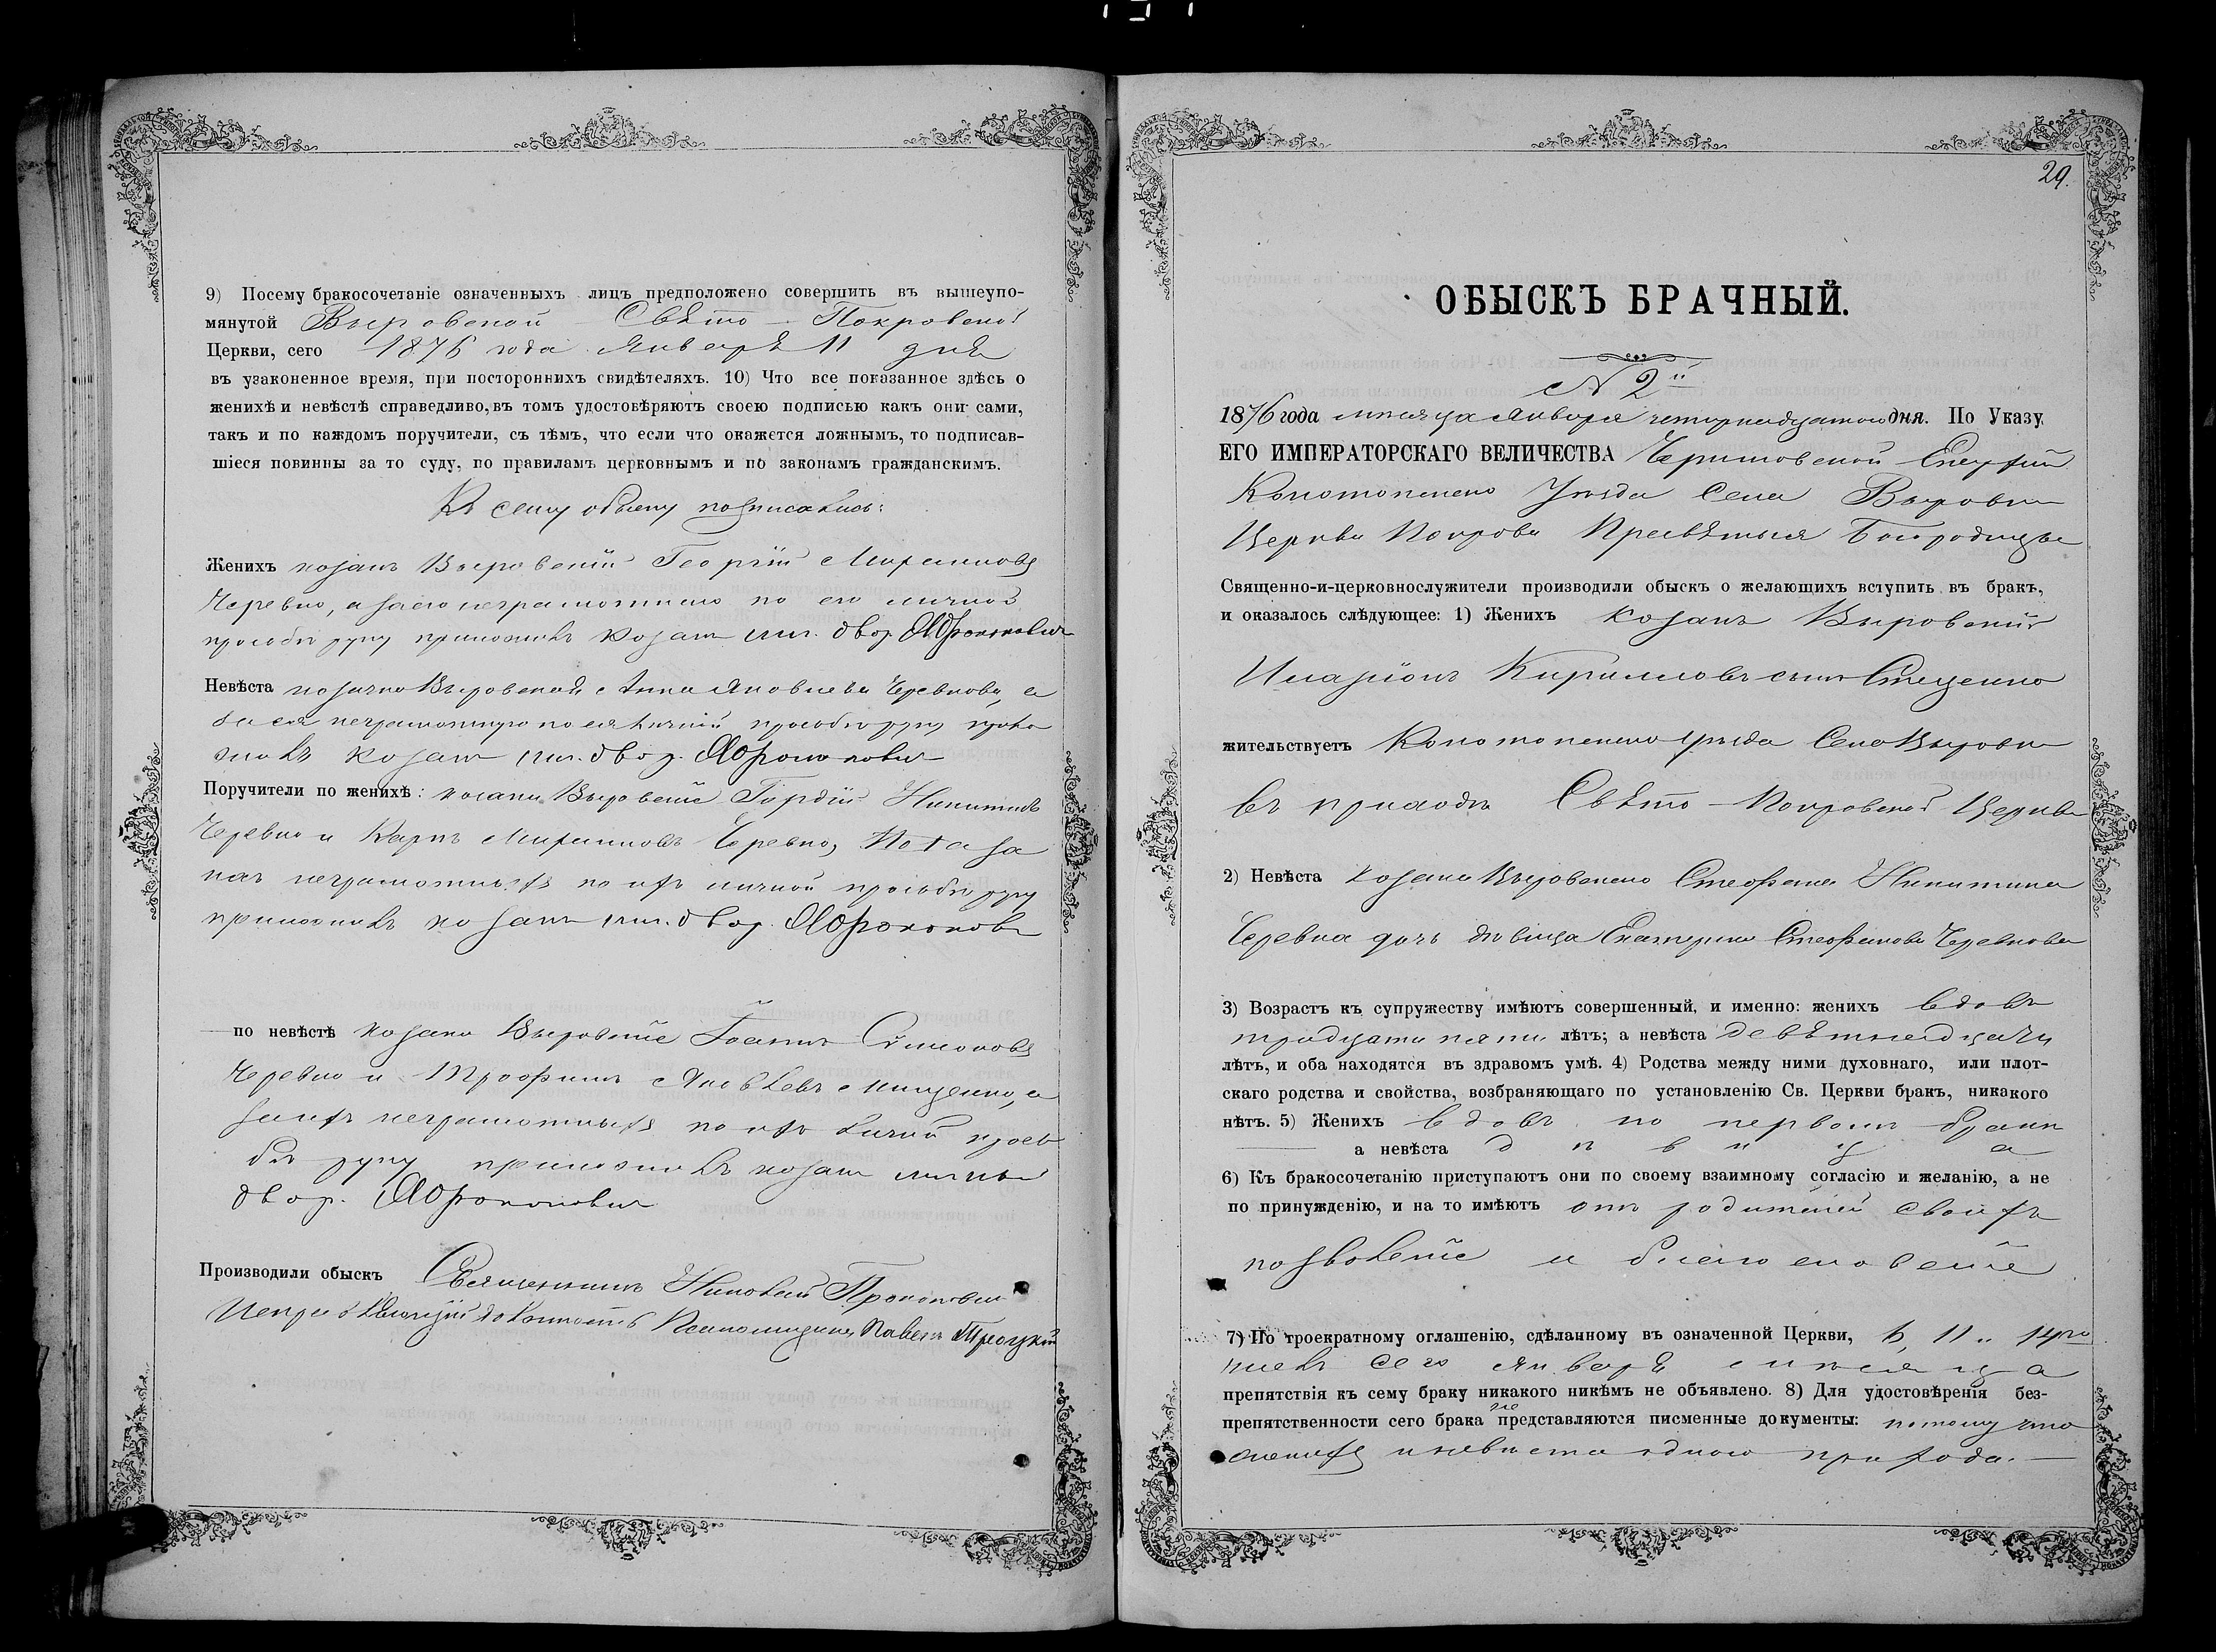 9) Посему бракосочетаніе означенныхъ лицъ предположено совершить въ вышеупо-
мянутой Выровской Свято-Покровской
Церкви, сего 1876 года Января 11 дня
въ узаконенное время, при постороннихъ свидѣтеляхъ. 10) Что все показанное здѣсь о
женихѣ и невѣстѣ справедливо, въ томъ удостовѣряютъ своею подписью какъ они сами,
такъ и по каждомъ поручители, съ тѣмъ, что если что окажется ложнымъ, то подписав-
шіеся повинны за то суду, по правиламъ церковнымъ и по законамъ гражданскимъ.
Къ сему обыску подписались:
Женихъ козакъ Выровскій Георгій
Черевко, а за его неграмотнаго по его личной
прозьбѣ руку приложилъ козакъ двор.
Невѣста козачка Выровская Анна Яковлева Черевкова, а
за ея неграмотную по ея личной прозьбѣ руку прило
жилъ козакъ двор.
Поручители по женихѣ: козаки Выровскіе Гордій Никитинъ
Черевко и Карпъ Черевко, но а за
нихъ неграмотныхъ по ихъ личной прозьбѣ руку
приложилъ козакъ двор.
по невѣстѣ козаки Выровскіе Іоаннъ Симоновъ
Черевко и Трофимъ Яковлевъ Мищенко, а
за ихъ неграмотныхъ по ихъ личной прозь
бѣ руку приложилъ козакъ
двор.
Производили обыскъ Священникъ Николай Прокоповичъ
Псаломщикъ Павелъ Троцкій
29.
ОБЫСКЪ БРАЧНЫЙ.
№ 2й
1876 года мѣсяца Января четырнадцатого дня. По Указу
ЕГО ИМПЕРАТОРСКАГО ВЕЛИЧЕСТВА Черниговской Епархіи
Конотопского Уѣзда Села Выровки
Церкви Покрова Пресвятыя Богородицы
Священно-и-церковнослужители производили обыскъ о желающихъ вступить въ бракъ,
и оказалось слѣдующее: 1) Женихъ козакъ Выровскій
Иларіонъ Кирилловъ сынъ Стеценко
жительствуетъ Конотопского уѣзда Села Выровки
въ приходѣ Свято-Покровской Церкви
2) Невѣста козака Выровского Стефана Никитина
Черевка дочь дѣвица Екатерина Стефанова Черевкова
3) Возрастъ къ супружеству имѣютъ совершенный, и именно: женихъ вдовъ
тридцати пяти лѣтъ; а невѣста девятнадцати
лѣтъ, и оба находятся въ здравомъ умѣ. 4) Родства между ними духовнаго, или плот-
скаго родства и свойства, возбраняющаго по установленію Св. Церкви бракъ, никакого
нѣтъ. 5) Женихъ вдовъ по первомъ бракѣ
а невѣста дѣвица
6) Къ бракосочетанію приступаютъ они по своему взаимному согласію и желанію, а не
по принужденію, и на то имѣютъ отъ родителей своихъ
позволеніе и благословеніе
7) По троекратному оглашенію, сдѣланному въ означенной Церкви, 6, 11 и 14го
числъ сего Января мѣсяца
препятствія къ сему браку никакого никѣмъ не объявлено. 8) Для удостовѣренія без-
препятственности сего брака не представляются писменные документы: потому что
женихъ и невѣста одного прихода.